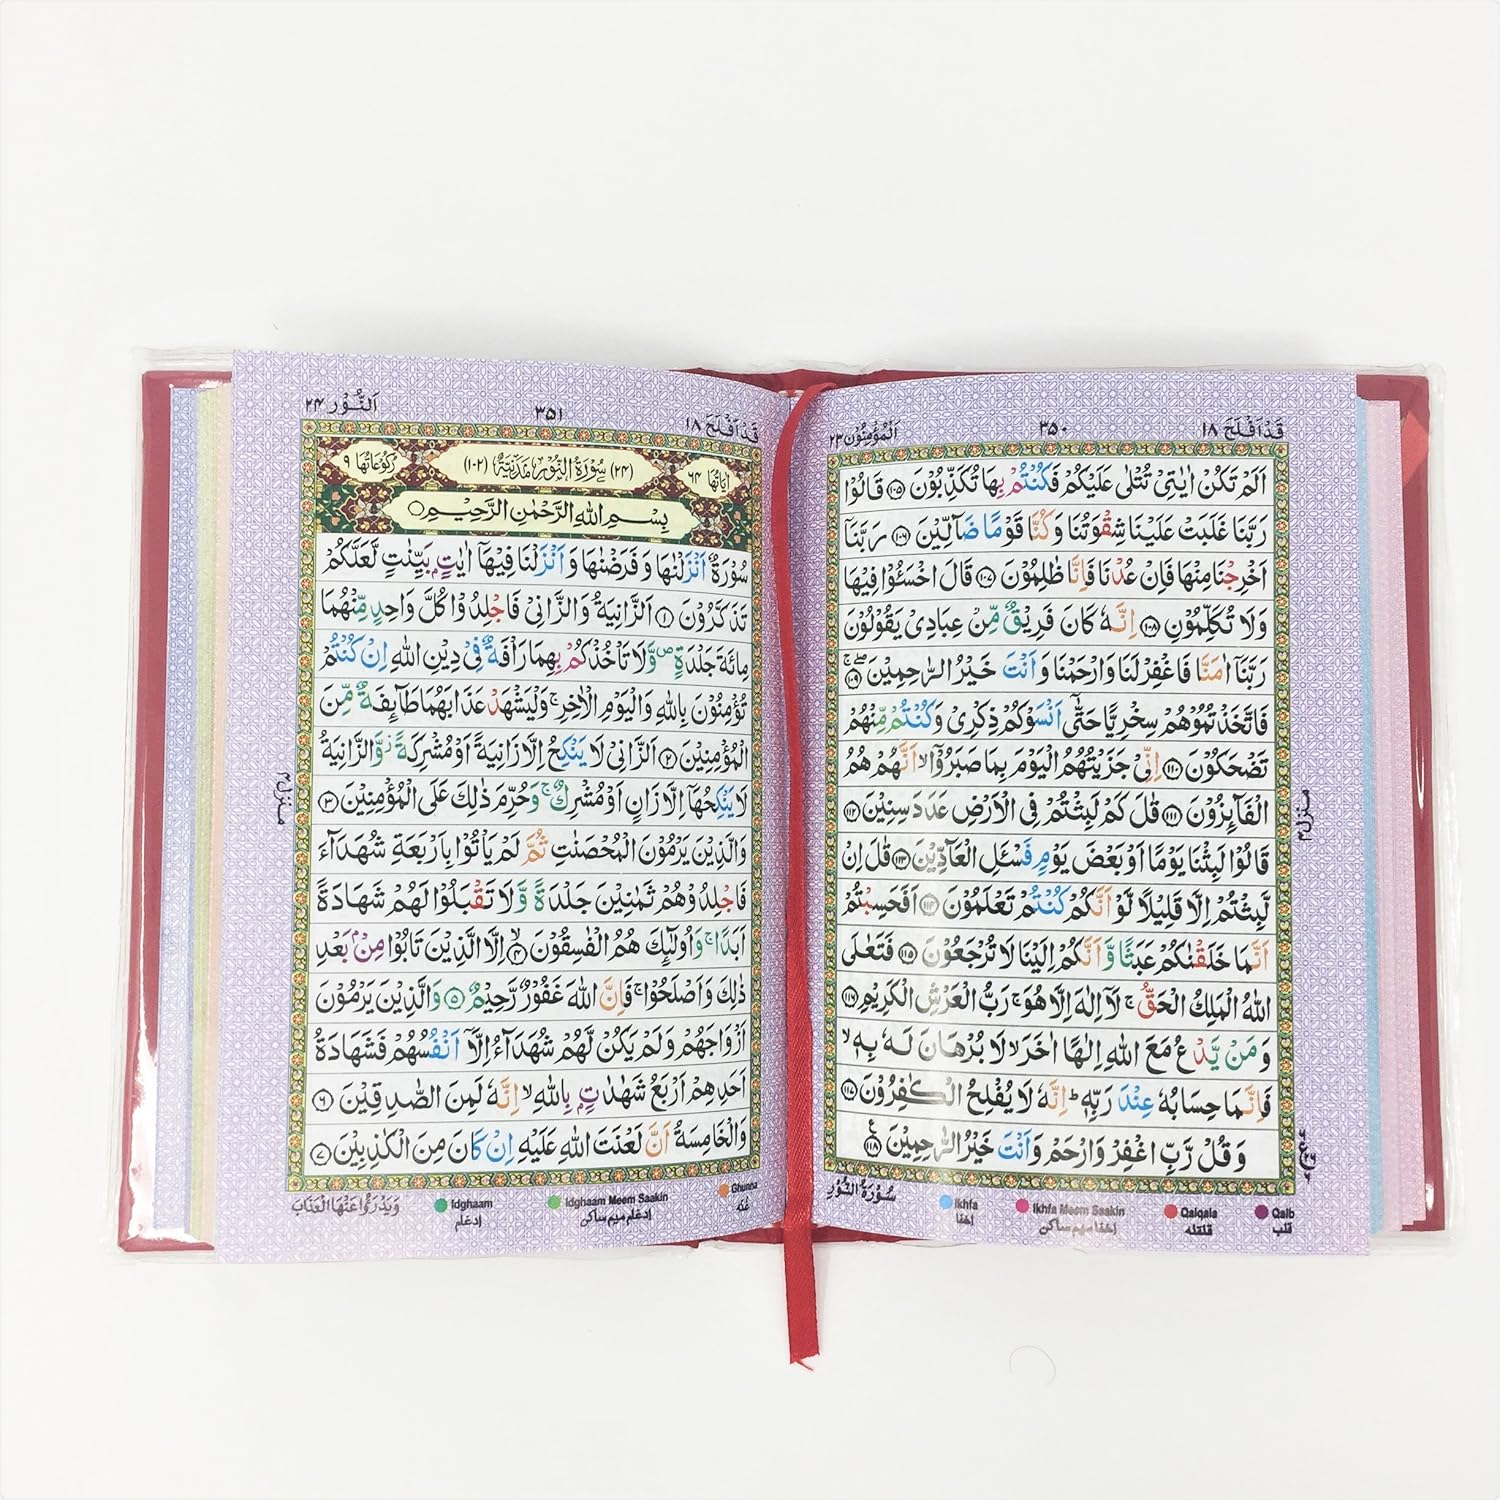 قَدْ اَفْلَحَ ١٨
٣٥٠
اَلْمُؤْمِنُوْن ٢٣
اَلَمْ تَكُنْ اٰيٰتِيْ تُتْلٰى عَلَيْكُمْ فَكُنْتُمْ بِهَا تُكَذِّبُوْنَ ١٠٥ قَالُوْا
رَبَّنَا غَلَبَتْ عَلَيْنَا شِقْوَتُنَا وَكُنَّا قَوْمًا ضَآلِّيْنَ ١٠٦ رَبَّنَآ
اَخْرِجْنَا مِنْهَا فَاِنْ عُدْنَا فَاِنَّا ظٰلِمُوْنَ ١٠٧ قَالَ اخْسَئُوْا فِيْهَا
وَلَا تُكَلِّمُوْنِ ١٠٨ اِنَّهٗ كَانَ فَرِيْقٌ مِّنْ عِبَادِيْ يَقُوْلُوْنَ
رَبَّنَآ اٰمَنَّا فَاغْفِرْ لَنَا وَارْحَمْنَا وَاَنْتَ خَيْرُ الرّٰحِمِيْنَ ١٠٩
فَاتَّخَذْتُمُوْهُمْ سِخْرِيًّا حَتّٰٓى اَنْسَوْكُمْ ذِكْرِيْ وَكُنْتُمْ مِّنْهُمْ
تَضْحَكُوْنَ ١١٠ اِنِّيْ جَزَيْتُهُمُ الْيَوْمَ بِمَا صَبَرُوْٓا ۙ اَنَّهُمْ هُمُ
الْفَآئِزُوْنَ ١١١ قٰلَ كَمْ لَبِثْتُمْ فِي الْاَرْضِ عَدَدَ سِنِيْنَ ١١٢
قَالُوْا لَبِثْنَا يَوْمًا اَوْ بَعْضَ يَوْمٍ فَسْئَلِ الْعَآدِّيْنَ ١١٣ قٰلَ اِنْ
لَّبِثْتُمْ اِلَّا قَلِيْلًا لَّوْ اَنَّكُمْ كُنْتُمْ تَعْلَمُوْنَ ١١٤ اَفَحَسِبْتُمْ
اَنَّمَا خَلَقْنٰكُمْ عَبَثًا وَّاَنَّكُمْ اِلَيْنَا لَا تُرْجَعُوْنَ ١١٥ فَتَعٰلَى
اللّٰهُ الْمَلِكُ الْحَقُّ ۚ لَآ اِلٰهَ اِلَّا هُوَ ۚ رَبُّ الْعَرْشِ الْكَرِيْمِ ١١٦
وَمَنْ يَّدْعُ مَعَ اللّٰهِ اِلٰهًا اٰخَرَ ۙ لَا بُرْهَانَ لَهٗ بِهٖ ۙ
فَاِنَّمَا حِسَابُهٗ عِنْدَ رَبِّهٖ ۭ اِنَّهٗ لَا يُفْلِحُ الْكٰفِرُوْنَ ١١٧
وَقُلْ رَّبِّ اغْفِرْ وَارْحَمْ وَاَنْتَ خَيْرُ الرّٰحِمِيْنَ ١١٨
سُوْرَةُ النُّوْرِ
Ikhfa
اخفا
Ikhfa Meem Saakin
اخفا میم ساکن
Qalqala
قلقله
Qalb
قلب
منزل ٤
قَدْ اَفْلَحَ ١٨
٣٥١
اَلنُّوْر ٢٤
اٰيَاتُهَا ٦٤
(٢٤) سُوْرَةُ النُّوْرِ مَدَنِيَّةٌ (١٠٢)
رُكُوْعَاتُهَا ٩
بِسْمِ اللّٰهِ الرَّحْمٰنِ الرَّحِيْمِ
سُوْرَةٌ اَنْزَلْنٰهَا وَفَرَضْنٰهَا وَاَنْزَلْنَا فِيْهَآ اٰيٰتٍۭ بَيِّنٰتٍ لَّعَلَّكُمْ
تَذَكَّرُوْنَ ١ اَلزَّانِيَةُ وَالزَّانِيْ فَاجْلِدُوْا كُلَّ وَاحِدٍ مِّنْهُمَا
مِائَةَ جَلْدَةٍ ۠ وَّلَا تَاْخُذْكُمْ بِهِمَا رَاْفَةٌ فِيْ دِيْنِ اللّٰهِ اِنْ كُنْتُمْ
تُؤْمِنُوْنَ بِاللّٰهِ وَالْيَوْمِ الْاٰخِرِ ۚ وَلْيَشْهَدْ عَذَابَهُمَا طَآئِفَةٌ مِّنَ
الْمُؤْمِنِيْنَ ٢ اَلزَّانِيْ لَا يَنْكِحُ اِلَّا زَانِيَةً اَوْ مُشْرِكَةً ۡ وَّالزَّانِيَةُ
لَا يَنْكِحُهَآ اِلَّا زَانٍ اَوْ مُشْرِكٌ ۚ وَحُرِّمَ ذٰلِكَ عَلَى الْمُؤْمِنِيْنَ ٣
وَالَّذِيْنَ يَرْمُوْنَ الْمُحْصَنٰتِ ثُمَّ لَمْ يَاْتُوْا بِاَرْبَعَةِ شُهَدَآءَ
فَاجْلِدُوْهُمْ ثَمٰنِيْنَ جَلْدَةً وَّلَا تَقْبَلُوْا لَهُمْ شَهَادَةً
اَبَدًا ۚ وَاُولٰٓئِكَ هُمُ الْفٰسِقُوْنَ ٤ اِلَّا الَّذِيْنَ تَابُوْا مِنْۢ بَعْدِ
ذٰلِكَ وَاَصْلَحُوْا ۚ فَاِنَّ اللّٰهَ غَفُوْرٌ رَّحِيْمٌ ٥ وَالَّذِيْنَ يَرْمُوْنَ
اَزْوَاجَهُمْ وَلَمْ يَكُنْ لَّهُمْ شُهَدَآءُ اِلَّآ اَنْفُسُهُمْ فَشَهَادَةُ
اَحَدِهِمْ اَرْبَعُ شَهٰدٰتٍۭ بِاللّٰهِ ۙ اِنَّهٗ لَمِنَ الصّٰدِقِيْنَ ٦
وَالْخَامِسَةُ اَنَّ لَعْنَتَ اللّٰهِ عَلَيْهِ اِنْ كَانَ مِنَ الْكٰذِبِيْنَ ٧
وَيَدْرَؤُا عَنْهَا الْعَذَابَ
Idghaam
ادغام
Idghaam Meem Saakin
ادغام میم ساکن
Ghunna
غنه
منزل ٤